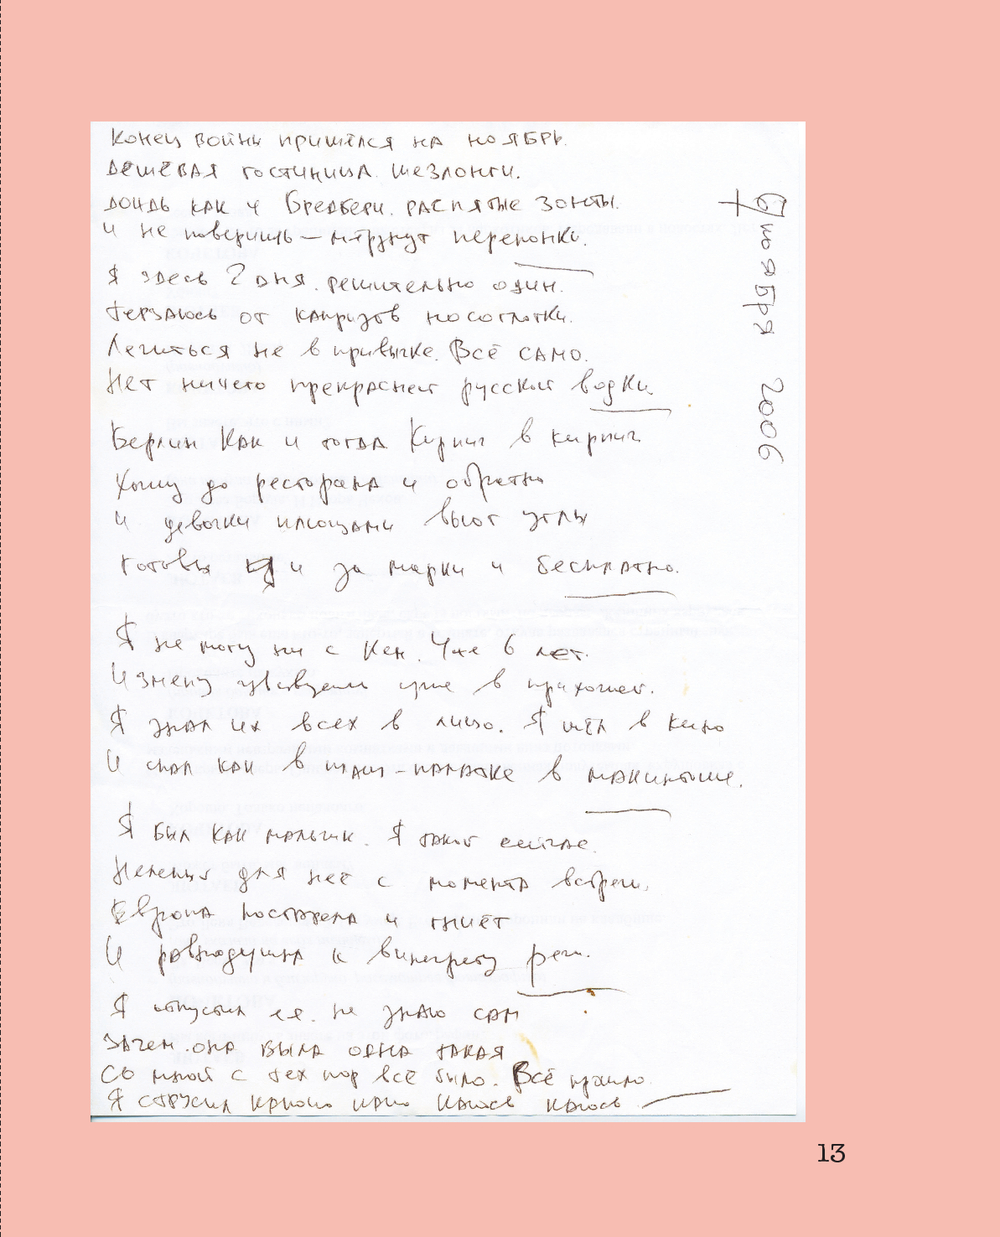 Конец войны пришёлся на ноябрь.
Дешёвая гостиница. Шезлонги.
Дождь как у Бредбери. Распятые зонты.
И не поверишь – мёрзнут перепонки.
Я здесь 2 дня. Решительно один.
Терзаюсь от капризов носоглотки.
Лечиться не в привычке. Всё само.
Нет ничего прекрасней русской водки
Берлин как и тогда Кирпич в кирпич
Хожу до ресторана и обратно
И девочки площадями вьют углы
Готовы и за марки и бесплатно.
Я не могу ни с кем. Уже 6 лет.
Измену чувствуем уже в прихожей.
Я знал их всех в лицо. Я шёл в кино
И спал как в палатке в макинтоше.
Я был как мальчик. Я такой сейчас.
Нелепый для неё с момента встречи.
Европа постарела и гниёт
И равнодушна к винегрету речи.
Я отпустил её. Не знаю сам
Зачем. Она была одна такая
Со мной с тех пор всё было. Всё прошло.
Я струсил каюсь каюсь
7 ноября 2006
13